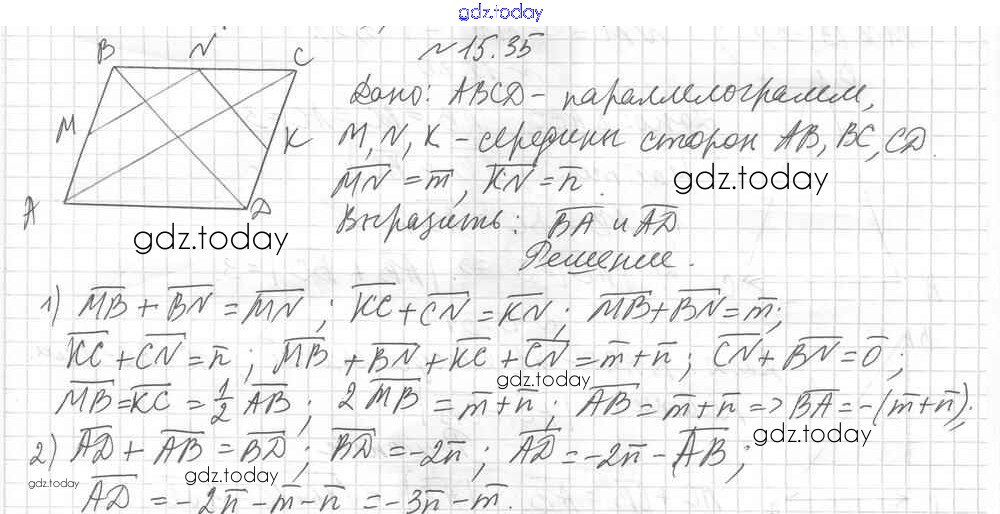 gdz.today
B N C
M K
A D
№15.35
Дано: ABCD - параллелограмм,
M, N, K - середины сторон AB, BC, CD.
MN̅ = m̅, KN̅ = n̅.
gdz.today
Выразить: BA̅ и AD̅
gdz.today
Решение.
1) MB̅ + BN̅ = MN̅; KC̅ + CN̅ = KN̅; MB̅ + BN̅ = m̅;
KC̅ + CN̅ = n̅; MB̅ + BN̅ + KC̅ + CN̅ = m̅ + n̅; CN̅ + BN̅ = 0̅;
gdz.today
MB̅ = KC̅ = 1/2 AB̅; 2MB̅ = m̅ + n̅; AB̅ = m̅ + n̅ => BA̅ = -(m̅ + n̅);
gdz.today
2) AD̅ + AB̅ = BD̅; BD̅ = -2n̅; AD̅ = -2n̅ - AB̅;
gdz.today
gdz.today
AD̅ = -2n̅ - m̅ - n̅ = -3n̅ - m̅.